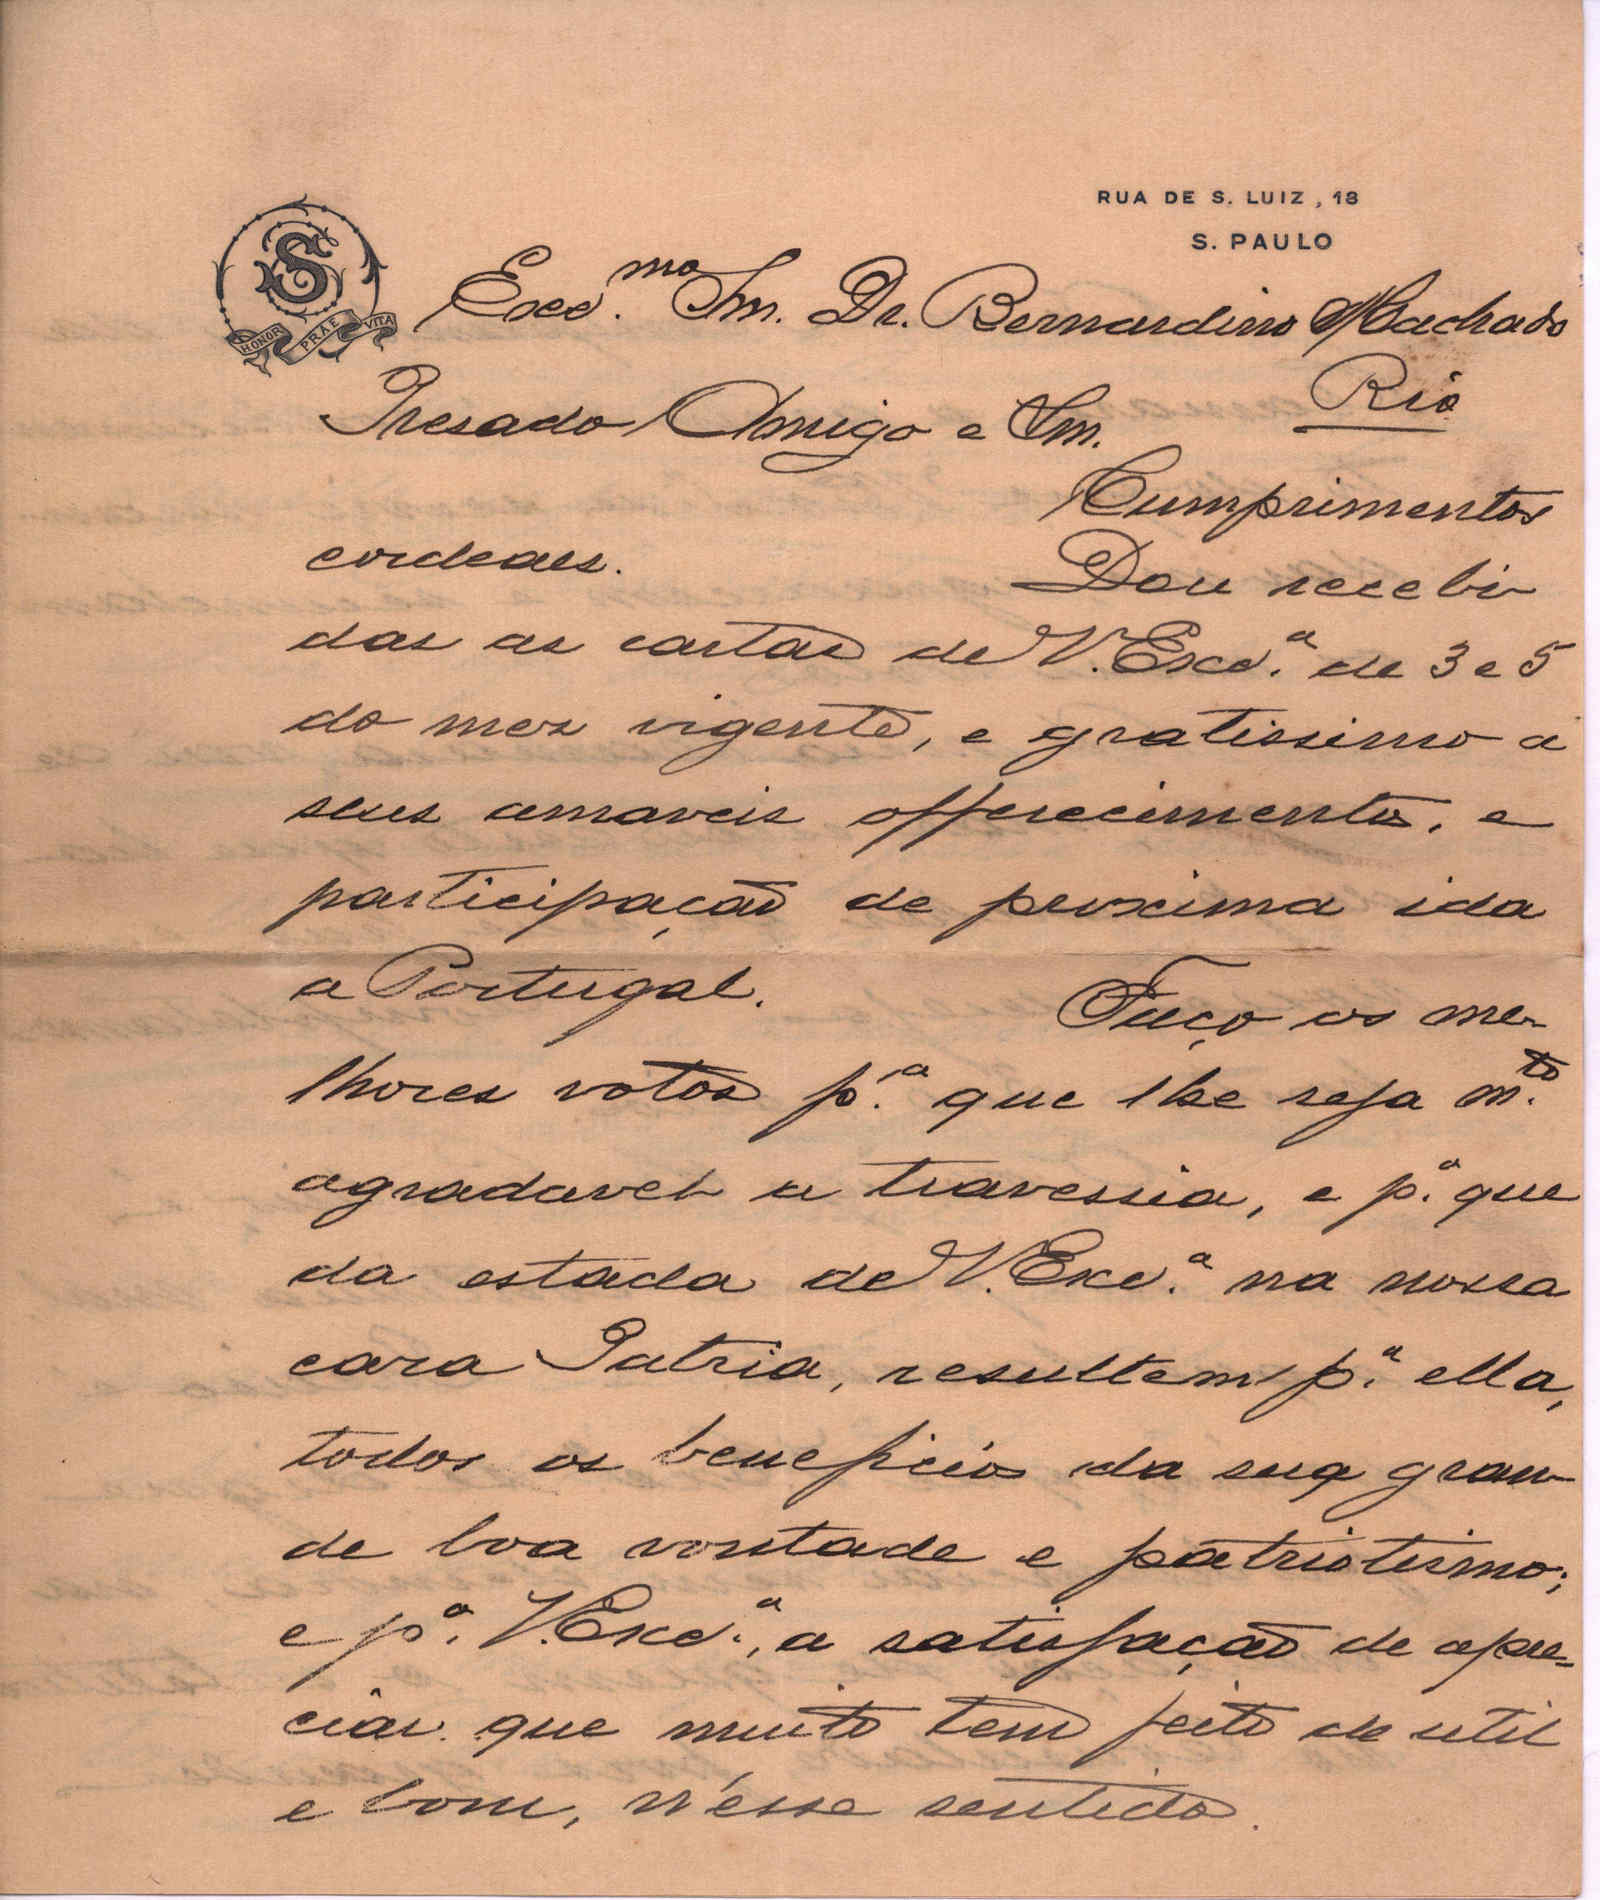 RUA DE S. LUIZ, 18
S. PAULO
S
HONOR PRAE VITA
Exce.mo Snr. Dr. Bernardino Machado
Rio
Presado Amigo e Snr.
Cumprimentos
cordeaes.
Dou recebi-
das as cartas de V. Exce.a de 3 e 5
do mez vigente, e gratissimo a
seus amaveis offerecimentos, e
participação de proxima ida
a Portugal.
Faço os me-
lhores votos p.a que lhe seja m.to
agradavel a travessia, e p.a que
da estada de V. Exce.a na nossa
cara Patria, resultem p.a ella,
todos os beneficios da sua gran-
de boa vontade e patriotismo;
e p.a V. Exce.a, a satisfação de apre-
ciar que muito tem feito de util
e bom, n'esse sentido.